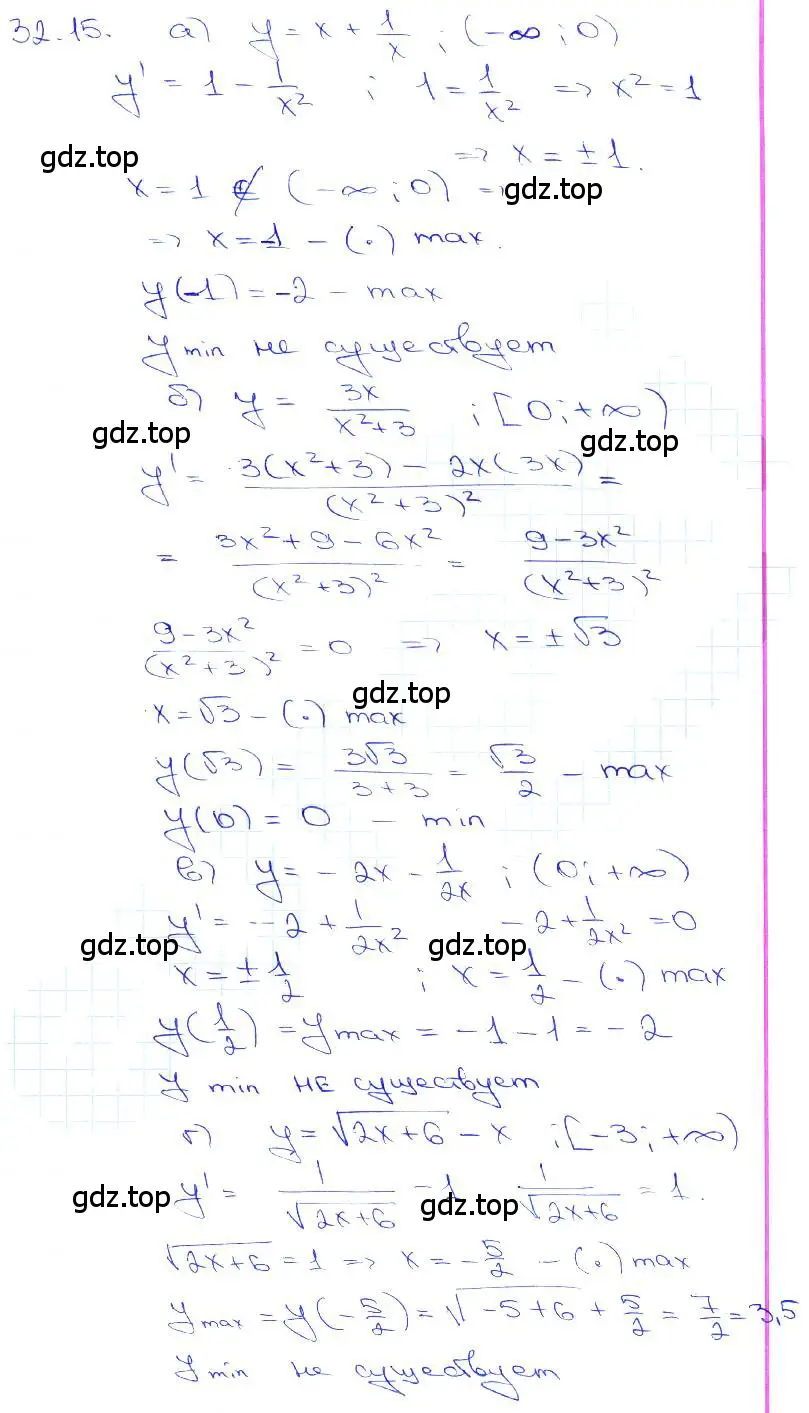 32.15. а) y = x + 1/x ; (-∞ ; 0)
y' = 1 - 1/x² ; 1 = 1/x² => x² = 1
gdz.top => x = ±1.
x = 1 ∉ (-∞ ; 0) => gdz.top
=> x = -1 - (·) max.
y(-1) = -2 - max
y min не существует
б) y = 3x/(x²+3) ; [0 ; +∞)
gdz.top gdz.top
y' = (3(x²+3) - 2x(3x))/(x²+3)² =
= (3x²+9-6x²)/(x²+3)² = (9-3x²)/(x²+3)²
(9-3x²)/(x²+3)² = 0 => x = ±√3
gdz.top
x = √3 - (·) max
y(√3) = 3√3/(3+3) = √3/2 - max
y(0) = 0 - min
в) y = -2x - 1/2x ; (0 ; +∞)
y' = -2 + 1/2x² -2 + 1/2x² = 0
gdz.top gdz.top
x = ± 1/2 ; x = 1/2 - (·) max
y(1/2) = y max = -1 - 1 = -2
y min не существует
г) y = √(2x+6) - x ; [-3 ; +∞)
gdz.top y' = 1/√(2x+6) - 1 gdz.top 1/√(2x+6) = 1.
√(2x+6) = 1 => x = -5/2 - (·) max
y max = y(-5/2) = √(-5+6) + 5/2 = 7/2 = 3,5
y min не существует